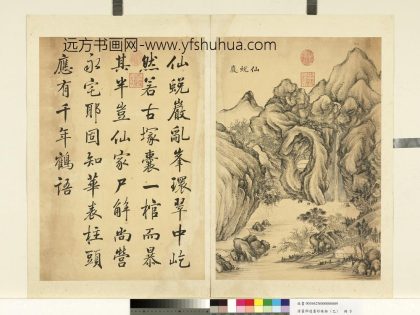 远方书画网-www.yfshuhua.com
仙蛻巖
仙蛻巖亂峯環翠中屹
然若古塚囊一棺而暴
其半豈仙家尸解尚營
永宅耶固知華表柱頭
應有千年鶴語